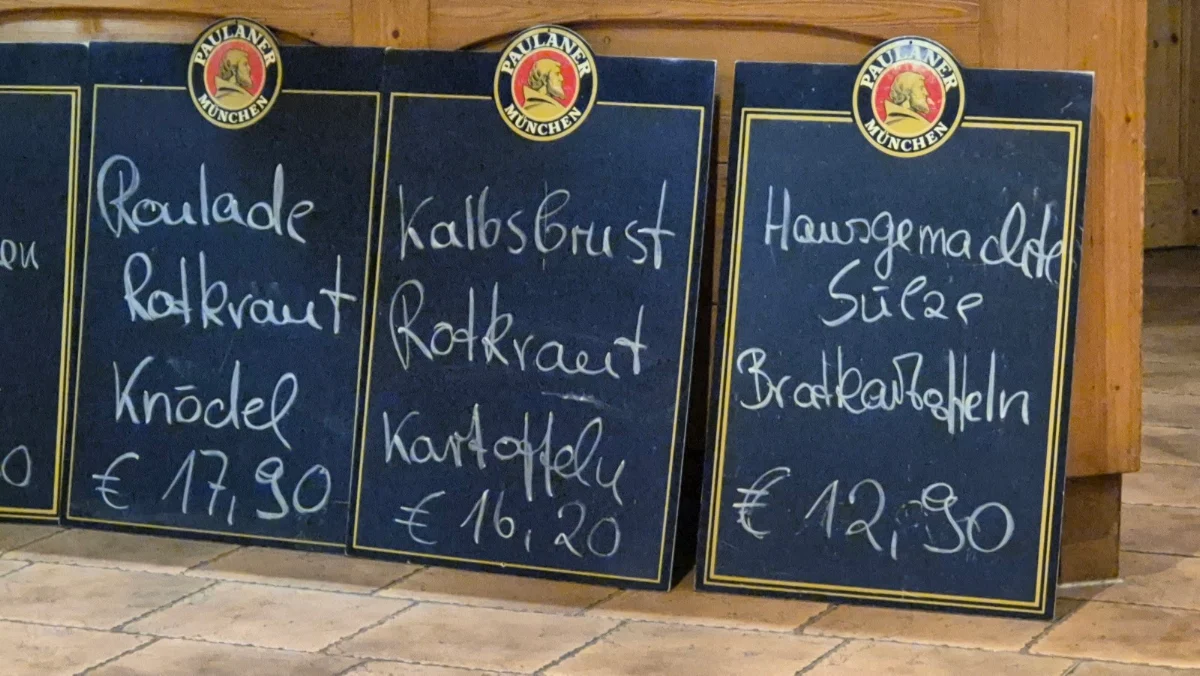 en
0
PAULANER
MÜNCHEN
Roulade
Rotkraut
Knödel
€ 17,90
PAULANER
MÜNCHEN
Kalbsbrust
Rotkraut
Kartoffeln
€ 16,20
PAULANER
MÜNCHEN
Hausgemachte
Sülze
Bratkartoffeln
€ 12,90